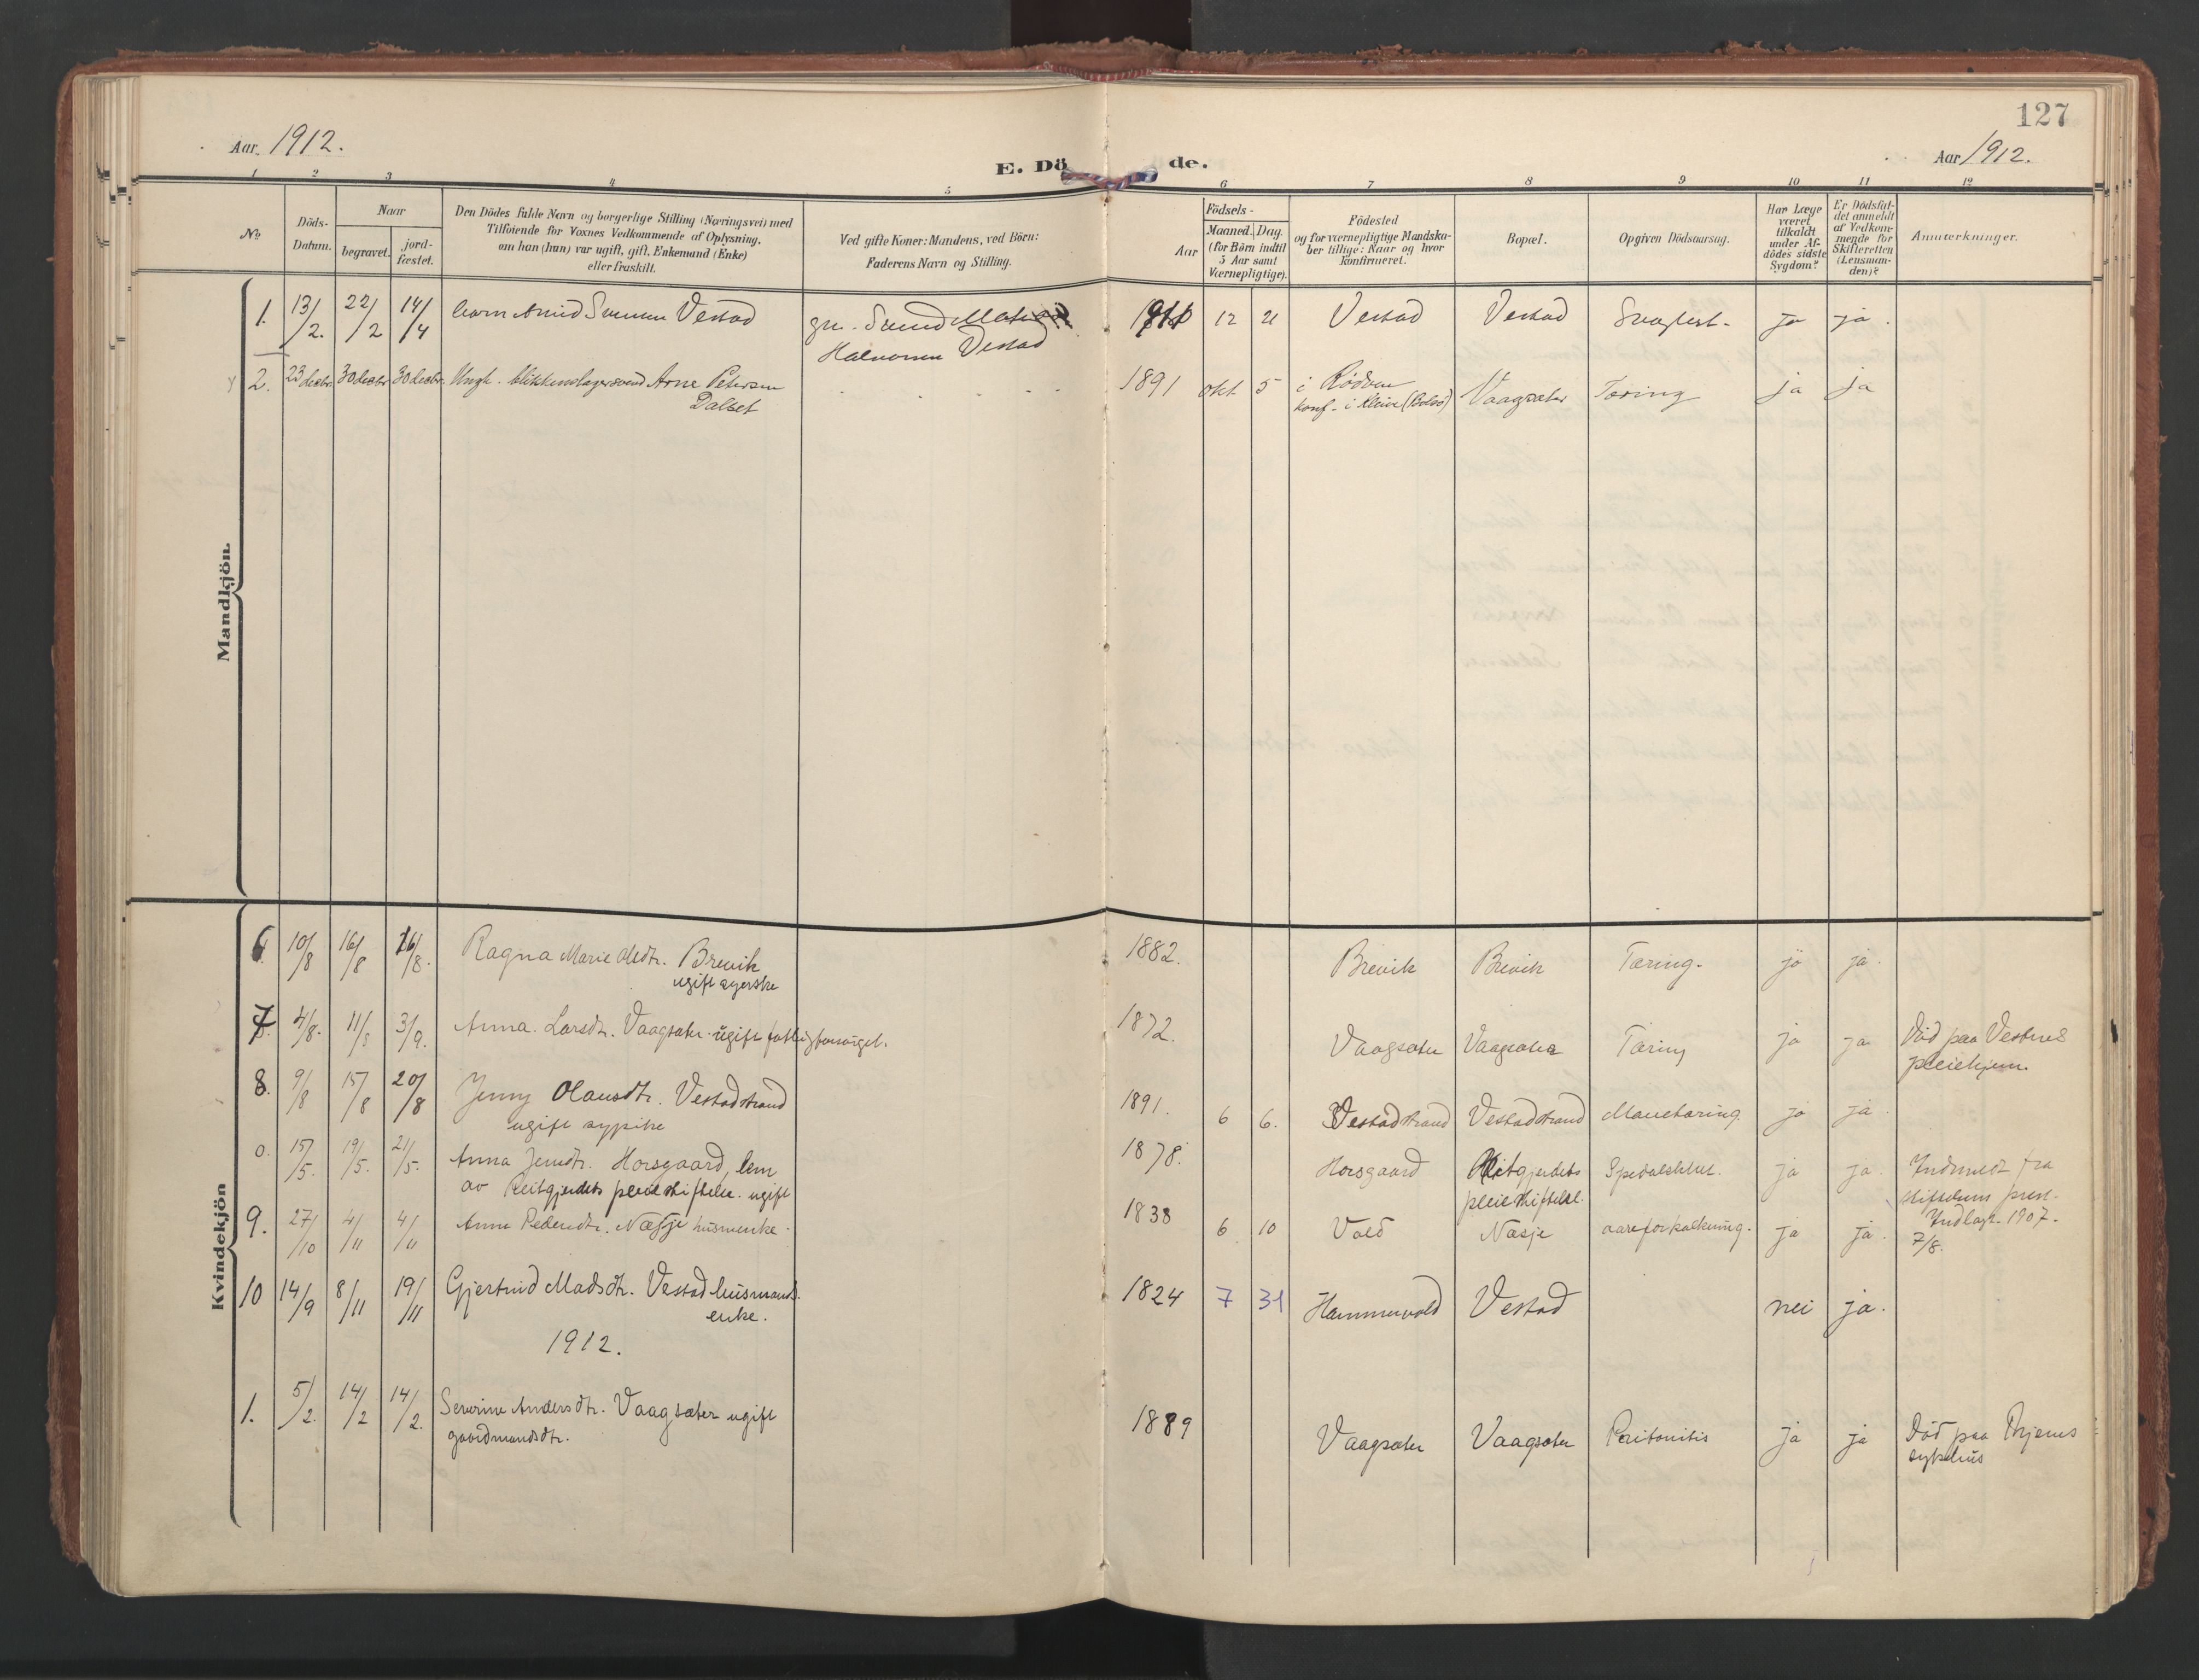 127
Aar 1912.
E. Dö de.
Aar 1912.
1 2 3 4 5 6 7 8 9 10 11 12
No.
Döds-Datum.
Naar
begravet.
jord-fæstet.
Den Dödes fulde Navn og borgerlige Stilling (Næringsvei) med
Tilföiende for Voxnes Vedkommende af Oplysning,
om han (hun) var ugift, gift, Enkemand (Enke)
eller fraskilt.
Ved gifte Koner: Mandens, ved Börn:
Faderens Navn og Stilling.
Aar
Födsels-
Maaned. Dag.
(for Börn indtil
5 Aar samt
Værnepligtige).
Födested
og for værnepligtige Mandska-
ber tillige: Naar og hvor
konfirmeret.
Bopæl.
Opgiven Dödsaarsag.
Har Læge
været
tilkaldt
under Af-
dödes sidste
Sygdom?
Er Dödsfal-
det anmeldt
af Vedkom-
mende for
Skifteretten
(Lensman-
den)?
Anmærkninger.
Mandkjön.
1. 13/2. 22/2 14/4 barn Vestad gm. Halvorsen Vestad 12 21 Vestad Vestad ja ja.
2. 23 decbr 30 decbr 30 decbr. Ungk. blikkenslagersvend Arne Petersen
Dalset 1891 okt 5 i Rödven
konf. i Kleive (Bolsö) Vaagsæter Tæring ja ja
Kvindekjön
6. 10/8 16/8 16/8. Ragna Marie Olsdtr. Brevik
ugift syerske 1882. Brevik Brevik Tæring. ja ja.
7. 4/8. 11/8 3/9. Anna Larsdtr. Vaagsæter. ugift fattigforsörget. 1872. Vaagsæter Vaagsæter Tæring ja ja Död paa Vestnes
pleiehjem.
8. 9/8 15/8 20/8 Jenny Olausdtr. Vestadstrand
ugift sypike 1891. 6 6. Vestadstrand Vestadstrand Mavetæring ja ja
0. 15/5. 19/5. 21/5. Anna Jensdtr. Horsgaard, lem
av Reitgjerdets pleiestiftelse. ugift 1878. Horsgaard Reitgjerdets
pleiestiftelse. Spedalskhet. ja ja. Indmeldt fra
stiftelsens prest.
Indlagt 1907.
7/8.
9. 27/10 4/11 4/11 Anne Pedersdtr. Næsje husmenke. 1838 6 10 Vold Næsje aareforkalkning. ja ja.
10 14/9 8/11 19/11 Gjertrud Madsdtr. Vestad husmands
enke. 1824 7 31 Hammervold Vestad nei ja.
1912.
1. 5/2. 14/2 14/2. Severine Andersdtr. Vaagsæter ugift
gaardmandsdtr. 1889 Vaagsæter Vaagsæter Peritonitis ja ja Död paa
sykehus